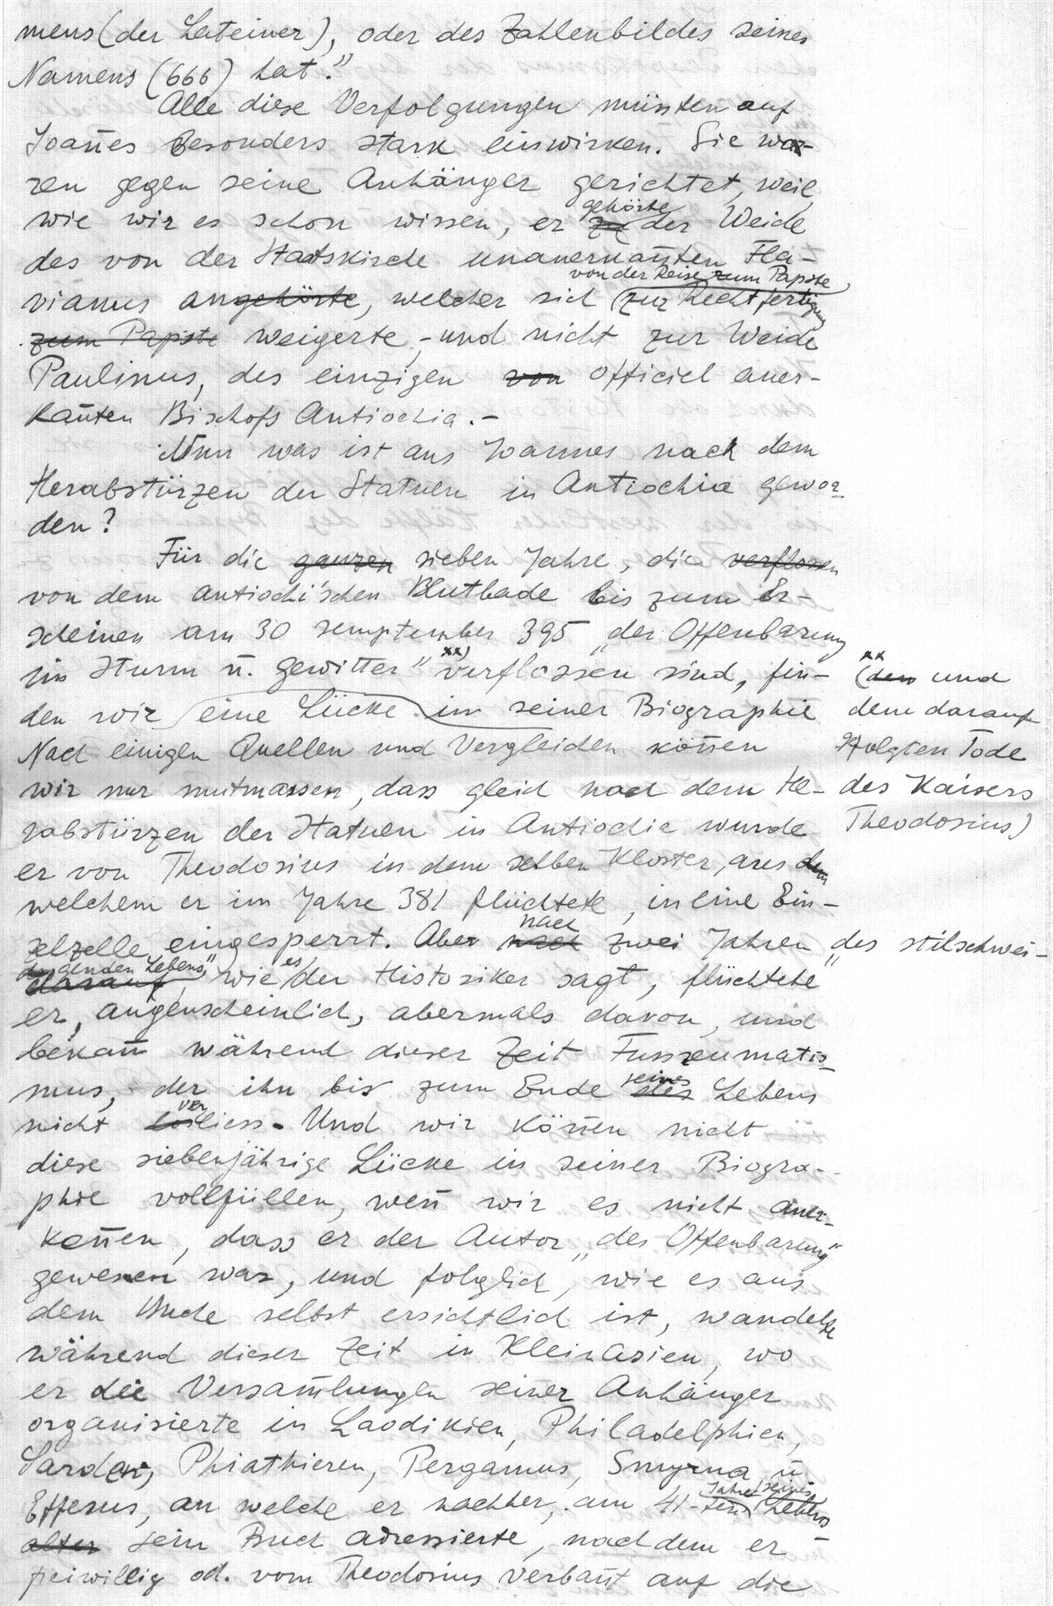 mens (der Lateiner), oder des Zahlenbildes seines
Namens (666) hat."
Alle diese Verfolgungen müssten auf
Joan̄es besonders stark einwirken. Sie wa-
ren gegen seine Anhänger gerichtet, weil
wie wir es schon wissen, er zu gehörte der Weide
des von der Staatskirche unanerkan̄ten Fla-
vianus angehörte, welcher sich von der Reise zum Papste (zur Rechtfertigung
zum Papste weigerte, - und nicht zur Weide
Paulinus, des einzigen von officiel aner-
kan̄ten Bischofs Antiochia. -
Nun was ist aus Joannes nach dem
Herabstürzen der Statuen in Antiochia gewor-
den?
Für die ganzen sieben Jahre, die verflossen
von dem antiochi'schen Blutbade bis zum Er-
scheinen am 30 semptember 395 "der Offenbarung
im Sturm u. gewitter" xx) verflossen sind, fin-
den wir eine Lücke in seiner Biographie
Nach einigen Quellen und Vergleichen kön̄en
wir nur mutmassen, dass gleich nach dem He-
rabstürzen der Statuen in Antiochia wurde
er von Theodosius in dem selben Kloster, aus dem
welchem er im Jahre 381 flüchtete, in eine Ein-
selzelle eingesperrt. Aber nach nach zwei Jahren "des stilschwei-
genden Lebens" darauf, wie es der Historiker sagt, flüchtete
er, augenscheinlich, abermals davon, und
bekam̄ während dieser Zeit Fussreumatis-
mus, der ihn bis zum Ende seines des Lebens
nicht los verliess. Und wir kön̄en nicht
diese siebenjährige Lücke in seiner Biogra-
phie vollfüllen, wen̄ wir es nicht aner-
ken̄en, dass er der Autor "des Offenbarung"
gewesen war, und folglich, wie es aus
dem Buche selbst ersichtlich ist, wandelte
während dieser Zeit in Kleinasien, wo
er die Versam̄lungen seiner Anhänger
organisierte in Laodikien, Philadelphien,
Sarden, Phiathieren, Pergamus, Smyrna u.
Effesus, an welche er nachher, am 41-ten Jahre seines Lebens
alter sein Buch adressierte, nachdem er
freiwillig od. vom Theodosius verban̄t auf die
xx
(dem und
dem darauf
folgten Tode
des Kaisers
Theodosius)